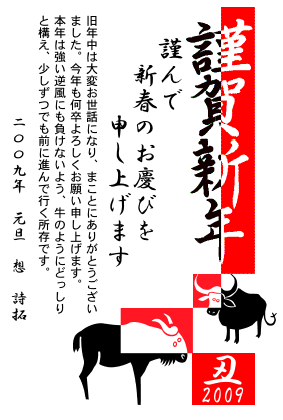 謹賀新年
謹んで
新春のお慶びを
申し上げます
旧年中は大変お世話になり、まことにありがとうござい
ました。今年も何卒よろしくお願い申し上げます。
本年は強い逆風にも負けないよう、牛のようにどっしり
と構え、少しずつでも前に進んで行く所存です。
二〇〇九年 元旦 想 詩拓
丑
2009